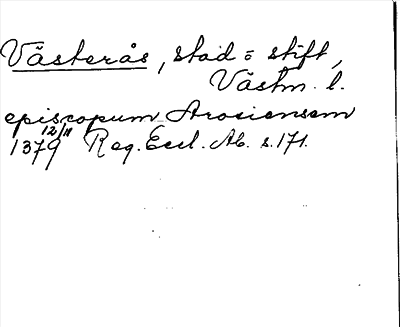 Västerås, stad o stift,
Västm. l.
episcopum Arosiensem
1379 12/11 Reg. Eccl. Ab. s. 171.